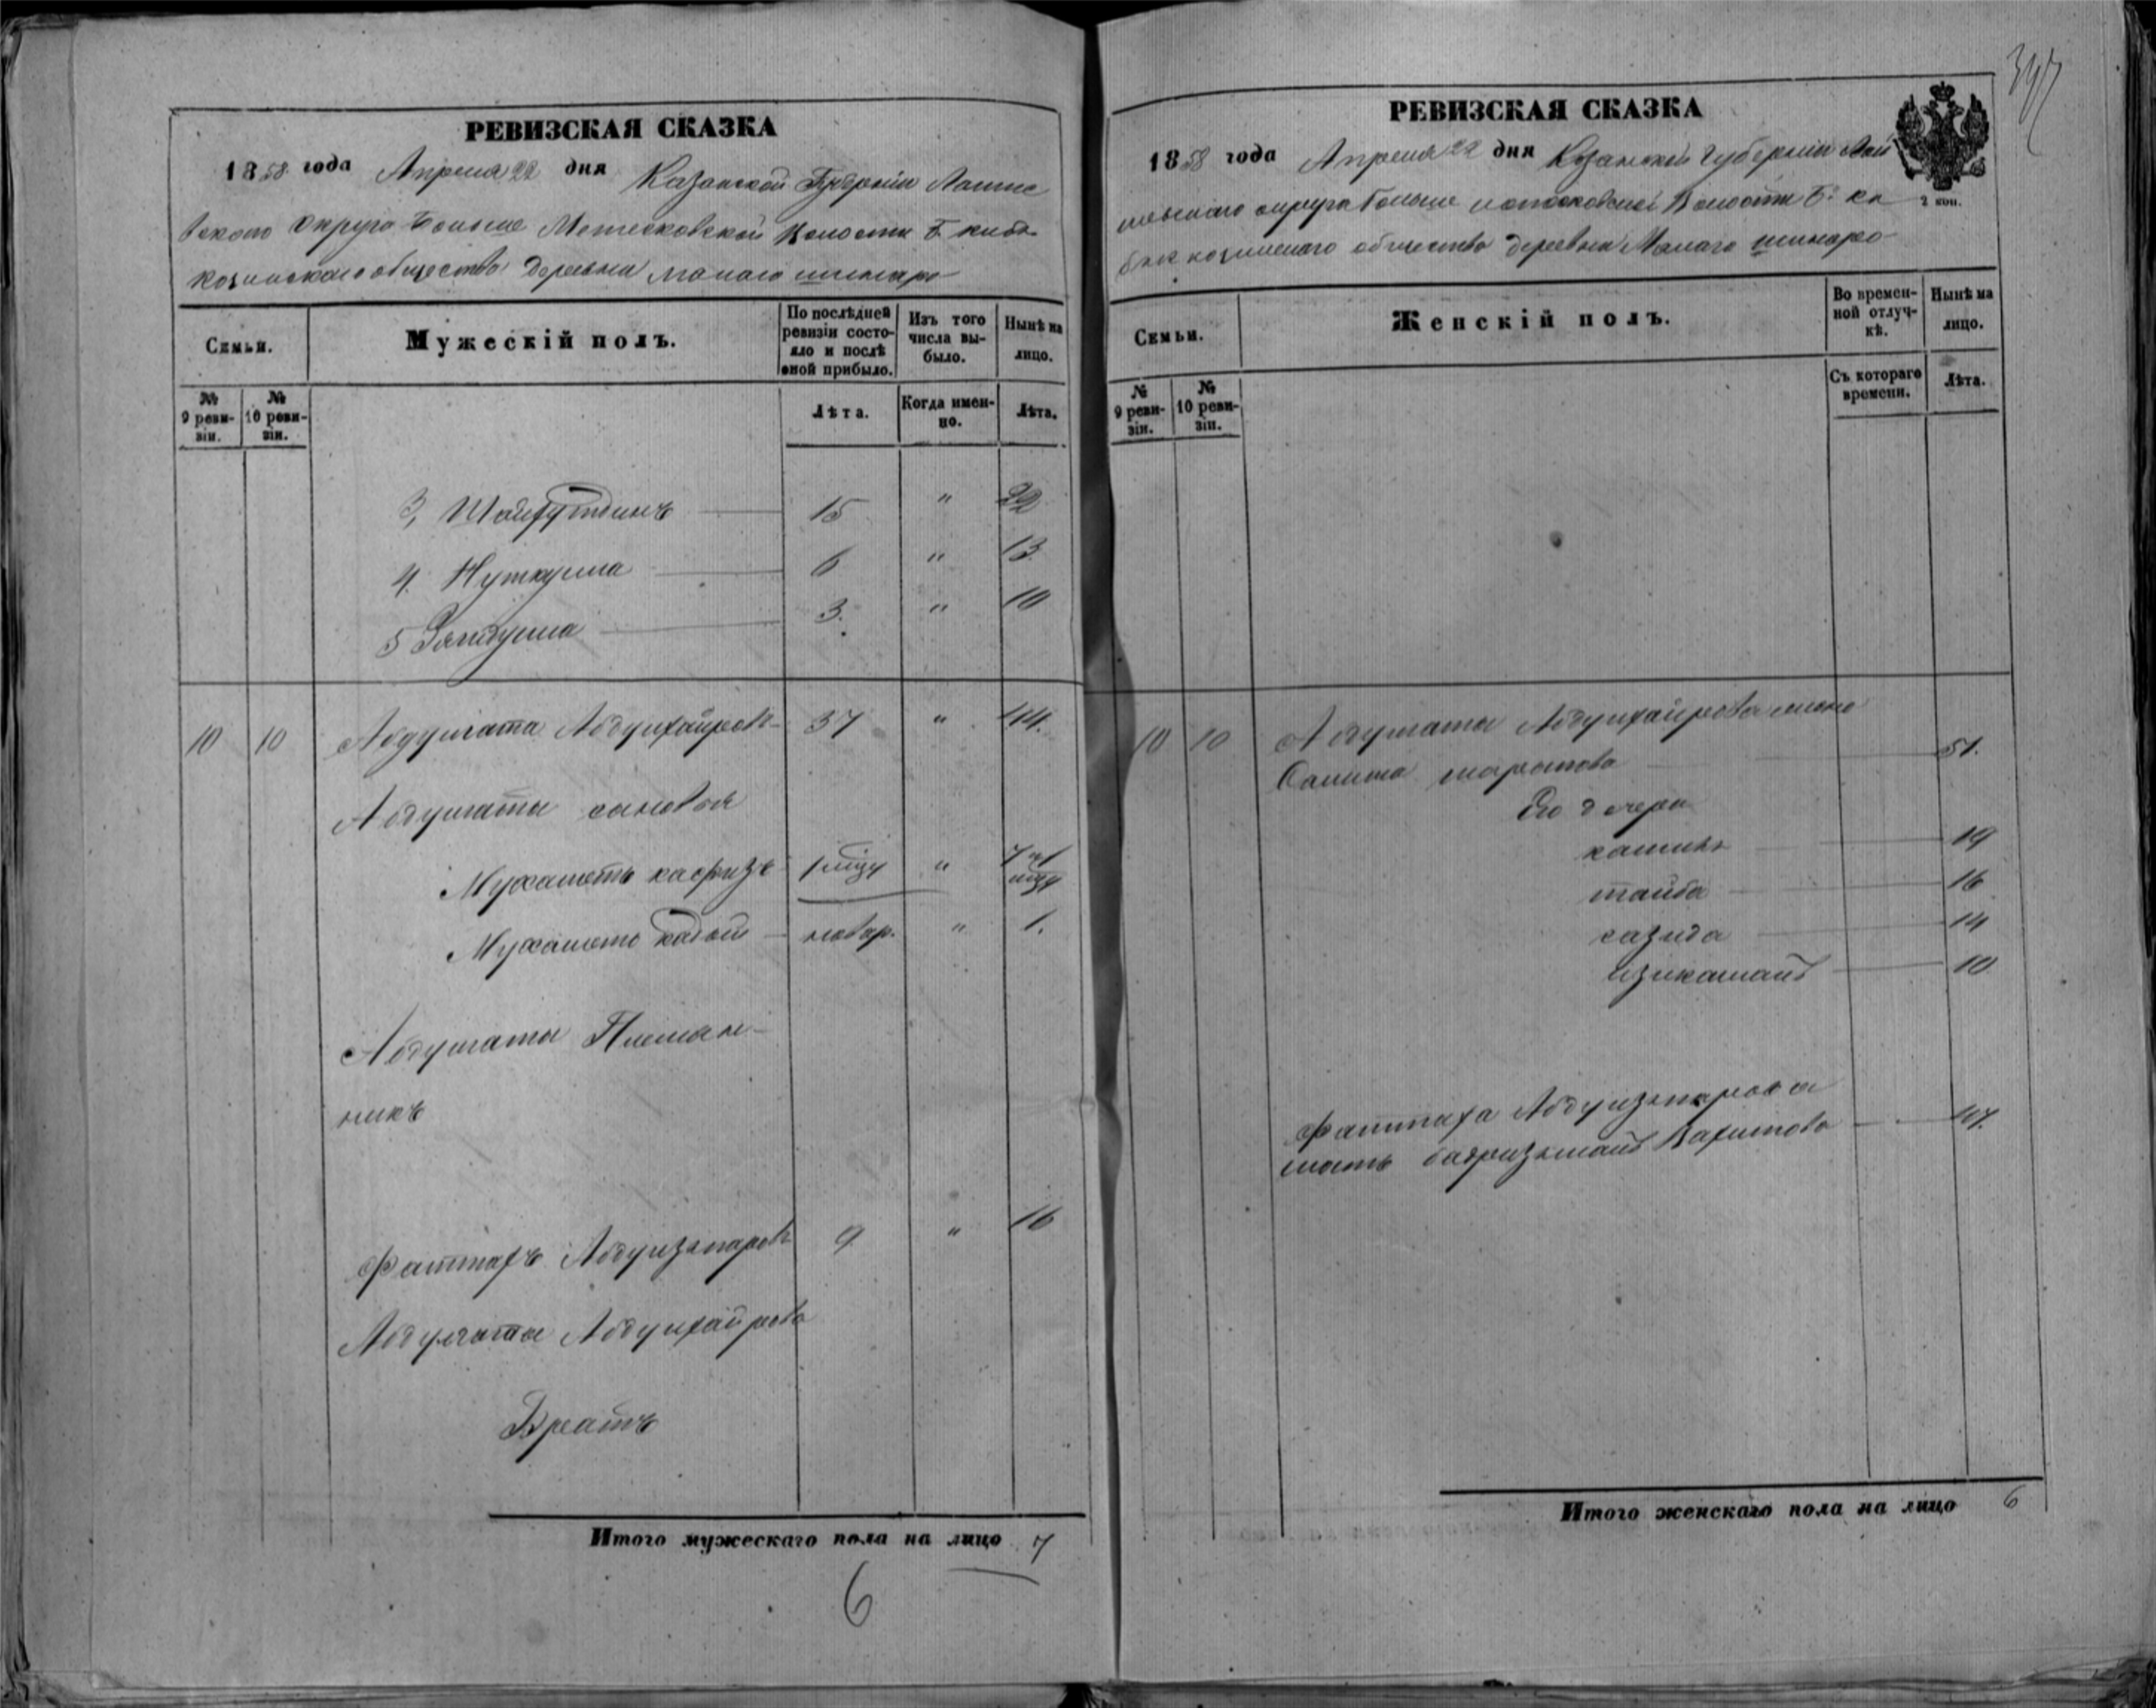 347
РЕВИЗСКАЯ СКАЗКА
1858 года Апреля 22 дня Казанской Губерніи Лаише
вскаго округа Больше Метесковской Волости Б. кибя
козинскаго общество деревни малаго шинаро
Семьи.
Мужескій полъ.
По послѣдней ревизіи состояло и послѣ оной прибыло.
Изъ того числа выбыло.
Нынѣ на лицо.
№ 9 ревизіи.
№ 10 ревизіи.
Лѣта.
Когда именно.
Лѣта.
3, Шайфутдинъ 15 " 22
4. 6 " 13
5 3. " 10
10 10 Абдулгата Абдулхаировъ 37 " 44.
Абдулгаты сыновья
Мухаметъ хафизъ 1 мцу " 7 и 1 мцу
Мухамето новор. " 1.
Абдулгаты Племян-
никъ
Фаттахъ 9 " 16
Абдулгаты Абдулхаирова
Братъ
Итого мужескаго пола на лицо 7
6
РЕВИЗСКАЯ СКАЗКА
1858 года Апреля 22 дня Казанской губерніи Лаи
шевскаго округа больше метесковской Волости Б. ки
бяк козинскаго общество деревни Малаго шинаро
2 коп.
Семьи.
Женскій полъ.
Во временной отлучкѣ.
Нынѣ на лицо.
№ 9 ревизіи.
№ 10 ревизіи.
Съ котораго времени.
Лѣта.
10 10 Абдулгаты Абдулхаирова жена
51.
Его дочери
19
таиба 16
сазида 14
10
Фаттаха
мать Вахитова 47.
Итого женскаго пола на лицо 6